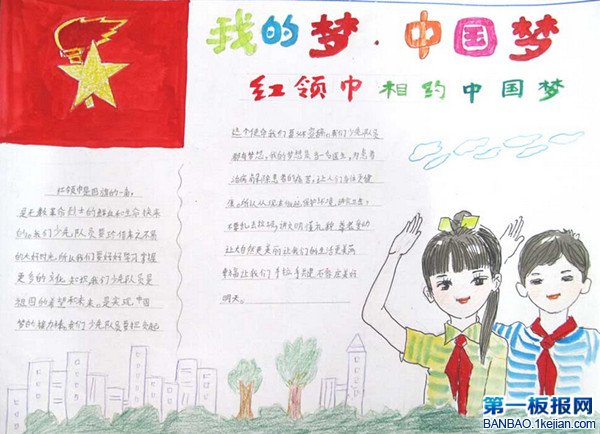 我的梦·中国梦
红领巾相约中国梦
红领巾是国旗的一角,
是无数革命烈士的鲜血和生命换来
的。我们少先队员要珍惜来之不易
的大好时光。所以我们要好好学习掌握
更多的文化知识,我们少先队员是
祖国的希望和未来。是实现中国
梦的接力棒。我们少先队员要担负起
这个使命我们要。我们少先队员
都有梦想。我的梦想是当一名医生,为患者
治病解除患者的病苦,让人们生活更健
康。所以从现在做起保护环境,讲究卫生,
不要乱丢垃圾,讲文明懂礼貌,尊老爱幼
让大自然更美丽让我们的生活更美丽
让我们手拉手共建美好
明天。
第一板报网
BANBAO.1kejian.com